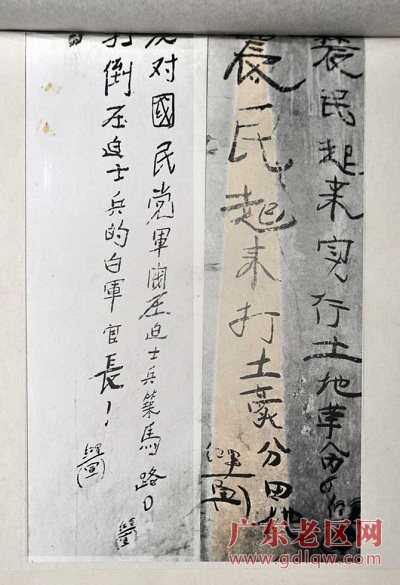 農民起来实行土地革命
農民起来打土豪分田地
紅軍
反对國民党軍閥压迫士兵築馬路
打倒压迫士兵的白軍官長!
广东老区网
www.gdlqw.com